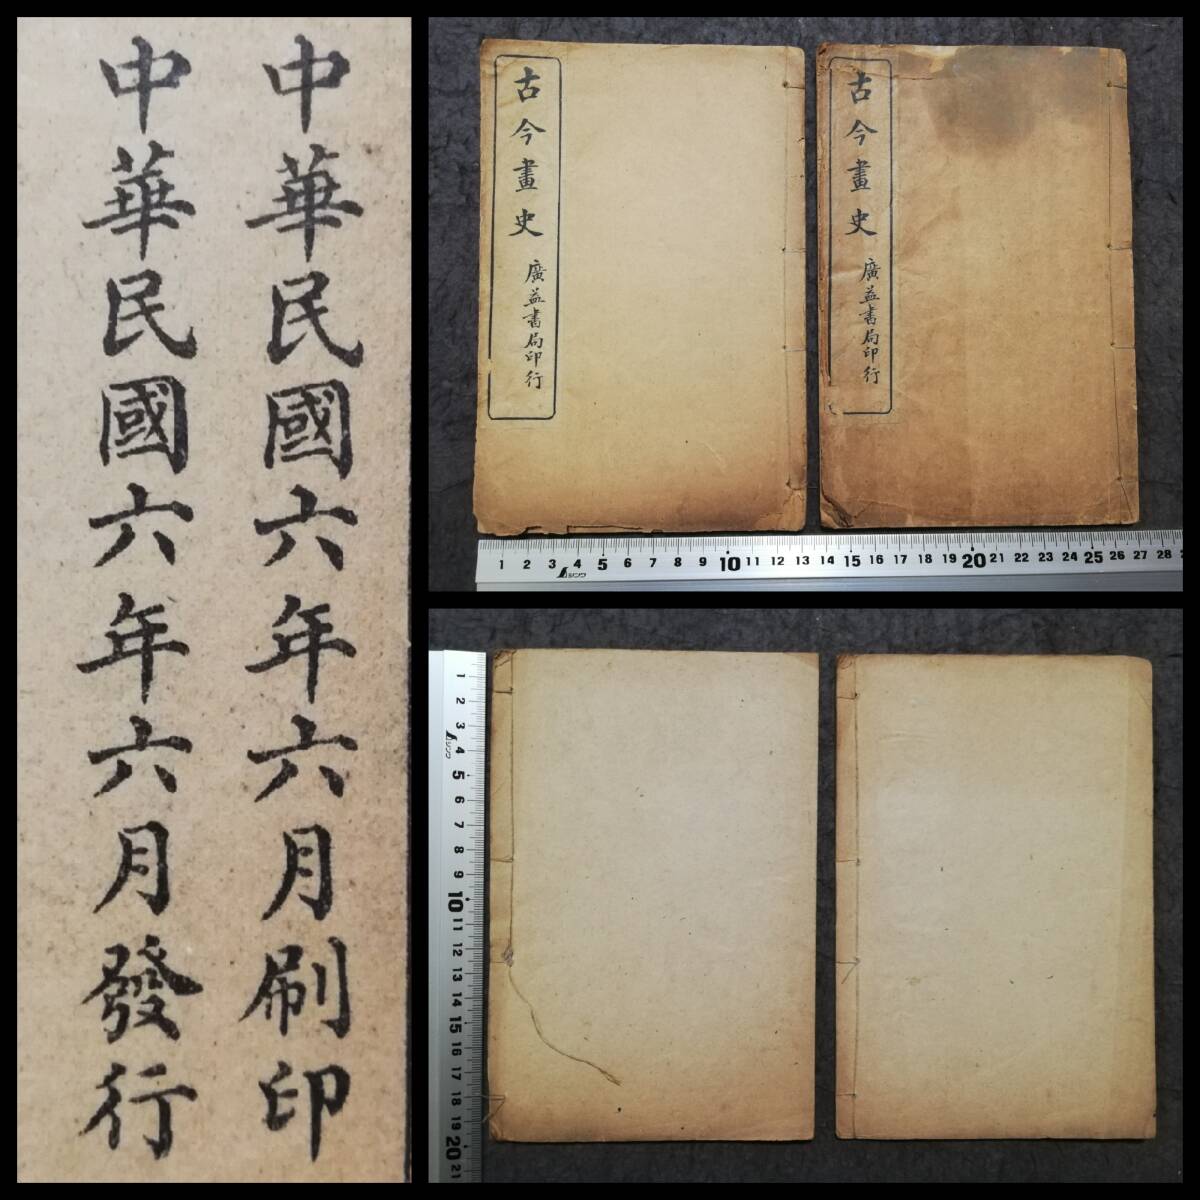 中華民國六年六月刷印
中華民國六年六月發行
古今畫史
廣益書局印行
古今畫史
廣益書局印行
1 2 3 4 5 6 7 8 9 10 11 12 13 14 15 16 17 18 19 20 21 22 23 24 25 26 27 28
シンワ
1 2 3 4 5 6 7 8 9 10 11 12 13 14 15 16 17 18 19 20 21
シンワ